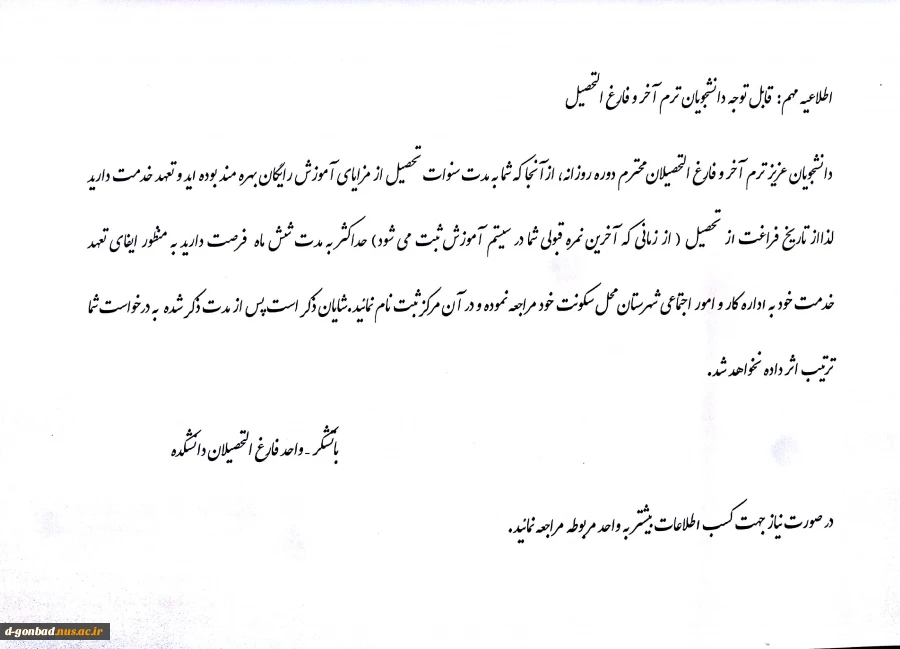 اطلاعیه مهم: قابل توجه دانشجویان ترم آخر و فارغ التحصیل
دانشجویان عزیز ترم آخر و فارغ التحصیلان محترم دوره روزانه، از آنجا که شما به مدت سنوات تحصیل از مزایای آموزش رایگان بهره مند بوده اید و تعهد خدمت دارید
لذا از تاریخ فراغت از تحصیل ( از زمانی که آخرین نمره قبولی شما در سیستم آموزش ثبت می شود) حداکثر به مدت شش ماه فرصت دارید به منظور ایفای تعهد
خدمت خود به اداره کار و امور اجتماعی شهرستان محل سکونت خود مراجعه نموده و در آن مرکز ثبت نام نمائید.شایان ذکر است پس از مدت ذکر شده به درخواست شما
ترتیب اثر داده نخواهد شد.
باتشکر -واحد فارغ التحصیلان دانشکده
در صورت نیاز جهت کسب اطلاعات بیشتر به واحد مربوطه مراجعه نمائید.
d-gonbad.nus.ac.ir